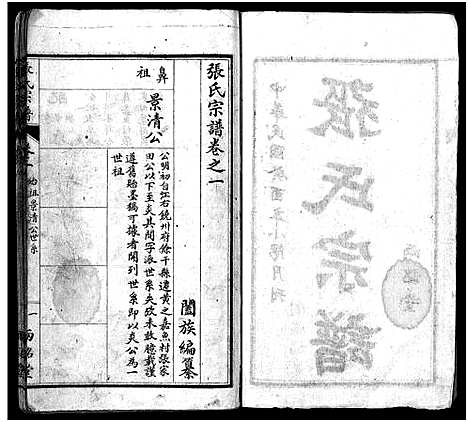 張氏宗譜
中華民國
張氏宗譜卷之一
闔族編纂
鼻祖
景清公
公明初自江右饒州府餘干縣遷黃之嘉魚村張家
田公以下至炎其間字派世系失攷未敢謄載謹
遵舊貽墨稿可據者開列世系即以炎公為一
世祖
張氏宗譜
卷之一
始祖景清公世系
一
兩銘堂